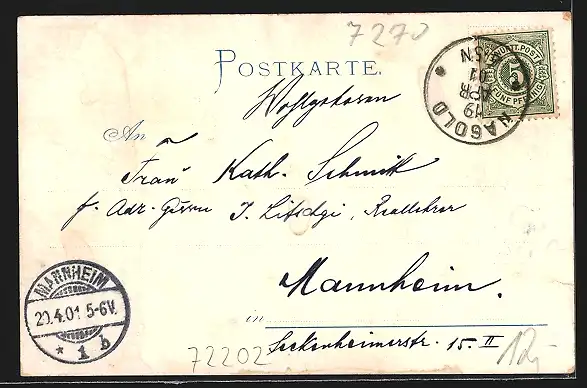 7270
POSTKARTE.
K. WÜRTT. POST
5
FÜNF PFENNIG
NAGOLD
19 APR 01
Wohlgeboren
An
Frau Kath. Schmitt
Reallehrer
Mannheim.
in
Seckenheimerstr. 15. II
MANNHEIM
20.4.01 5-6V.
* 1 b
72202
12,-